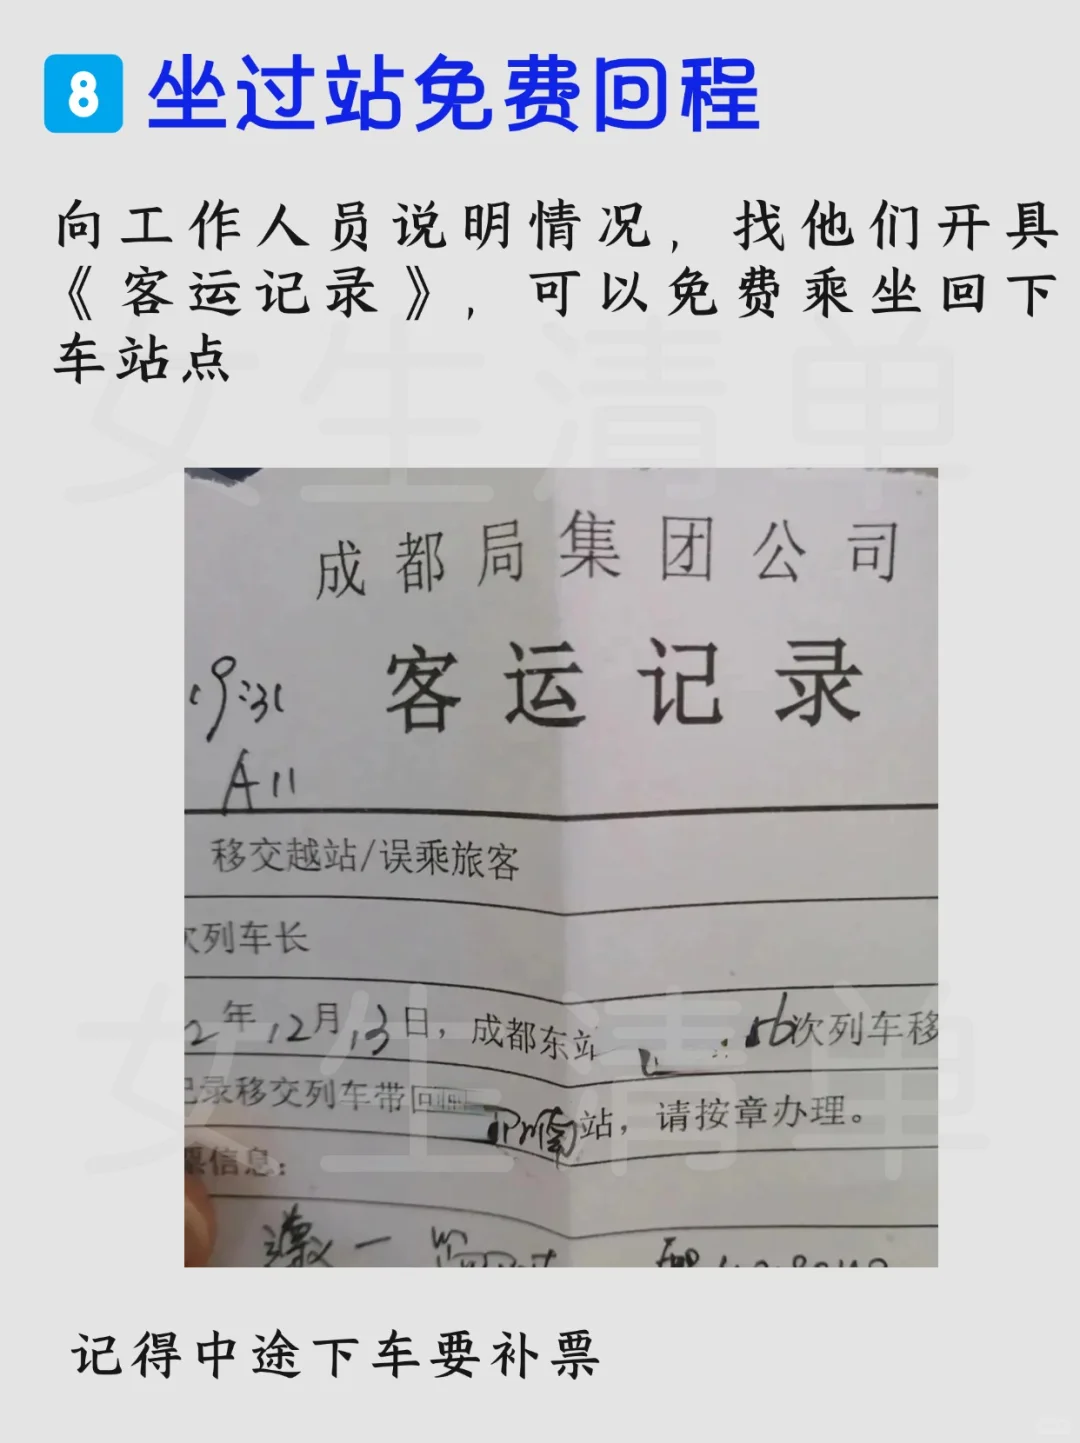 8 坐过站免费回程
向工作人员说明情况，找他们开具
《客运记录》，可以免费乘坐回下
车站点
女生清单
成都局集团公司
客运记录
19:31
A11
移交越站/误乘旅客
次列车长
2年12月13日，成都东站 56次列车移
记录移交列车带回 南站，请按章办理。
票信息：
遵义一
女生清单
记得中途下车要补票